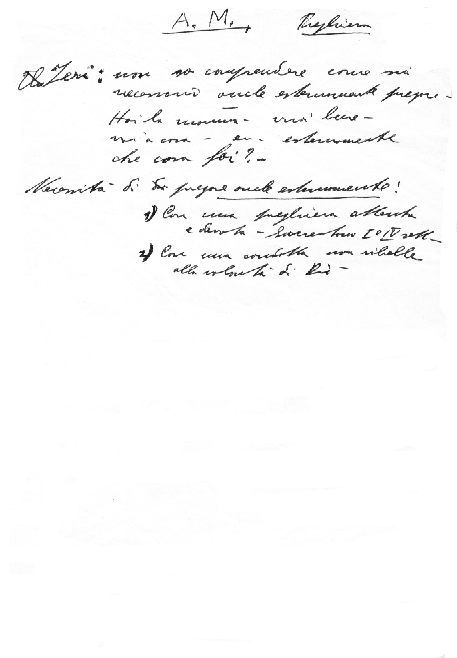 A. M., Preghiera
Ieri: non so comprendere come sia
necessario anche esternamente pregare -
Hai la mamma - vuoi bene -
ma - esternamente
che cosa fai? -
Necessità di pregare anche esternamente!
1) Con una preghiera attenta
e devota - I° IV
2) Con una condotta non ribelle
alla volontà di Dio -